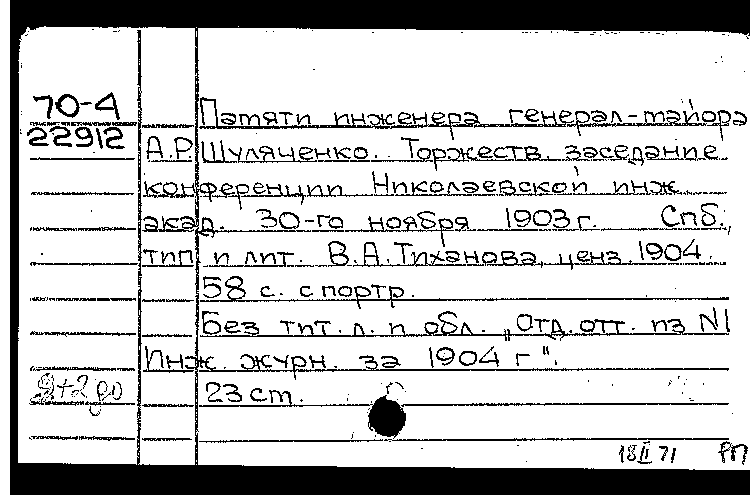 70-4
22912
Памяти инженера генерал-майора
А.Р. Шуляченко. Торжеств. заседание
конференции Николаевской инж.
акад. 30-го ноября 1903 г. Спб.,
тип. и лит. В.А. Тиханова, ценз. 1904.
58 с. с портр.
Без тит. л. и обл. „Отд. отт. из N1
Инж. журн. за 1904 г".
23 ст.
18 II 71